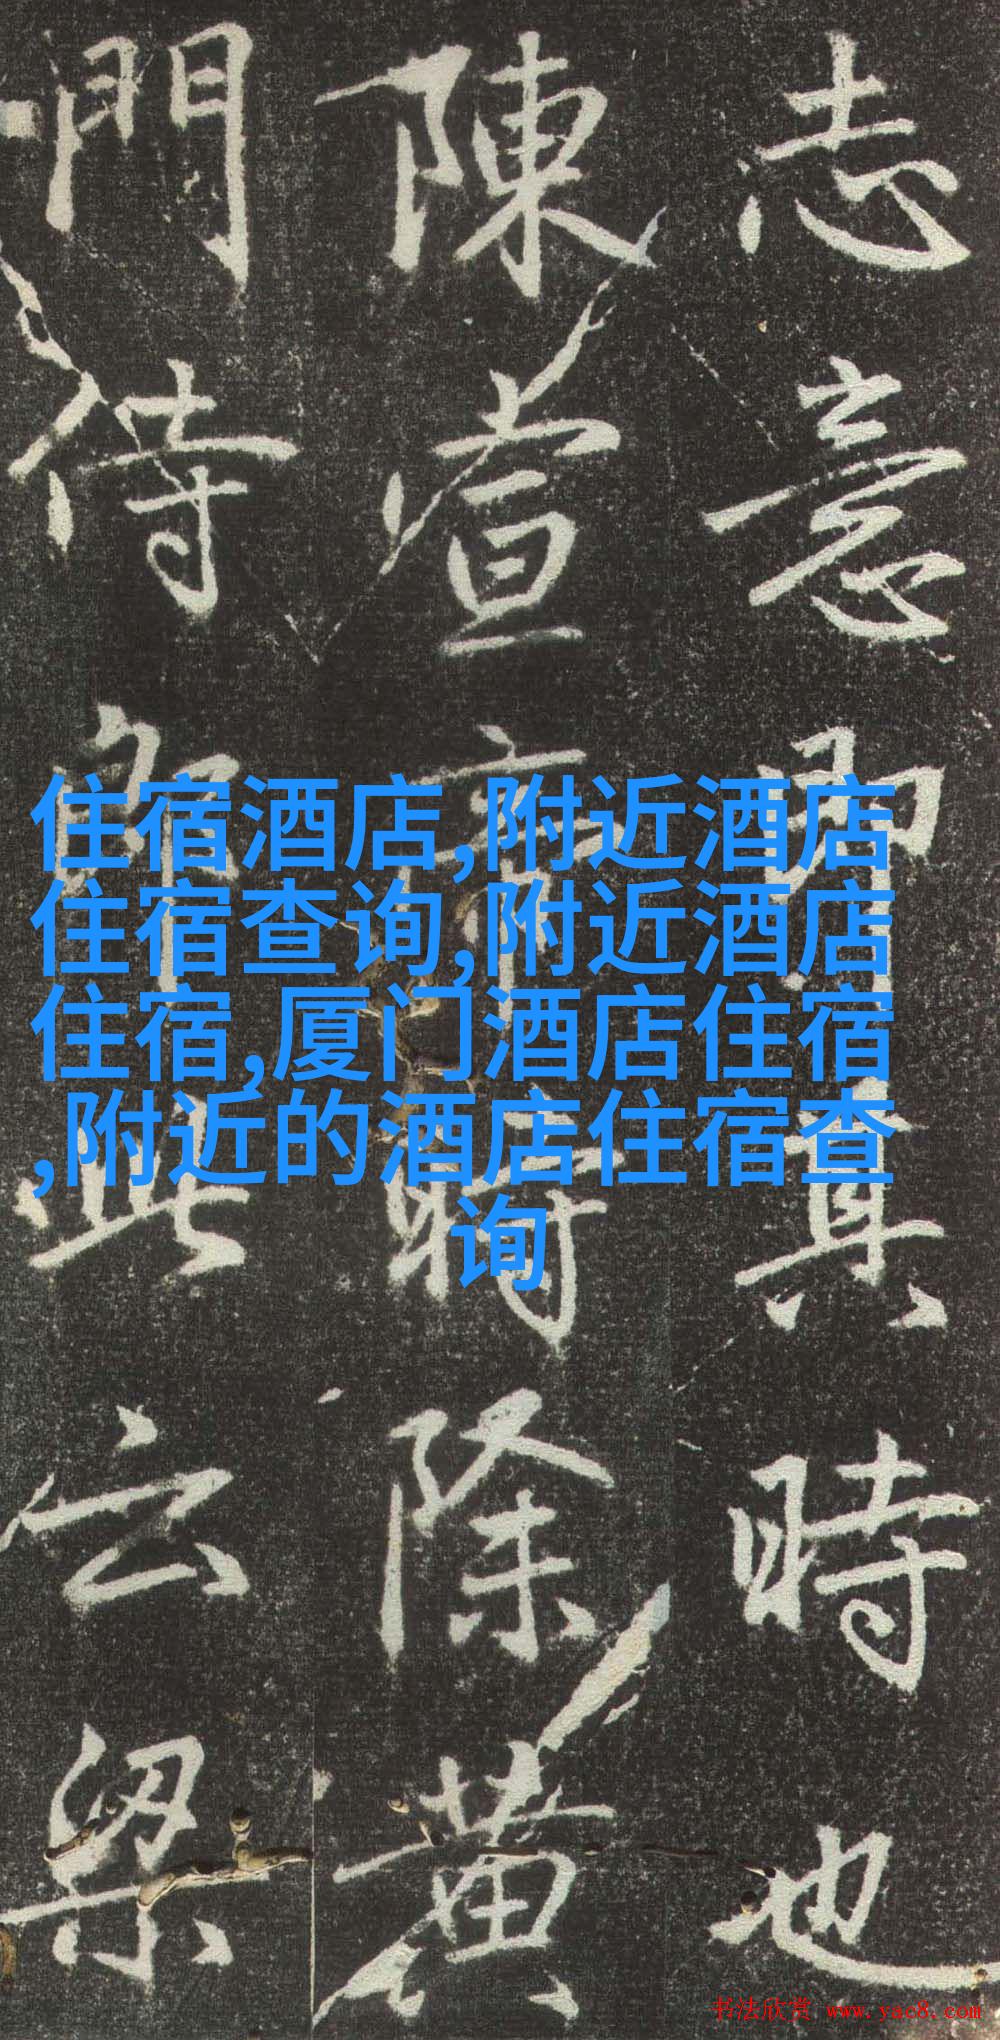 志意其時也
陳宣帝時除黃
門侍郎此云梁
住宿酒店,附近酒店
住宿查询,附近酒店
住宿,厦门酒店住宿
,附近的酒店住宿查
询
书法欣赏 www.yac8.com